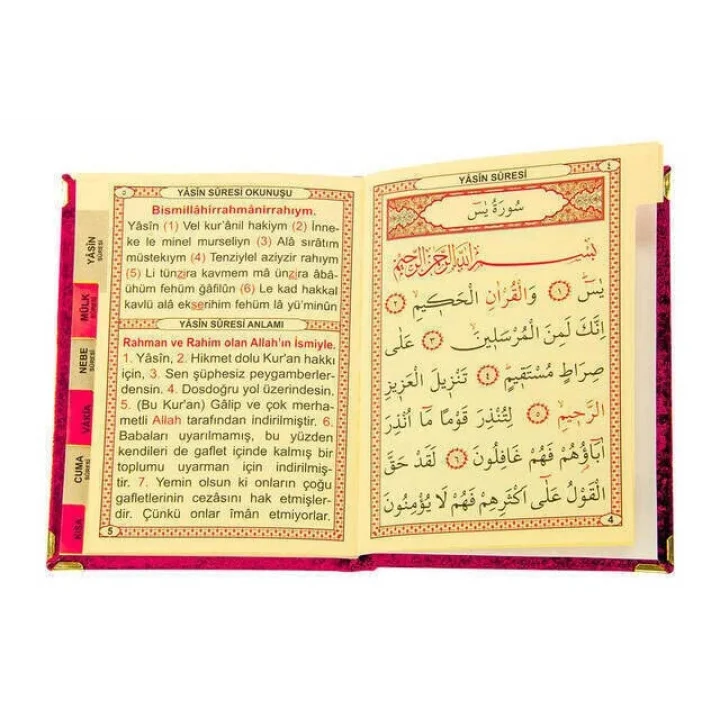 YÂSİN SÛRESİ
٤
سُورَةُ يٰسٓ
بِسْــمِ اللّٰهِ الرَّحْمٰنِ الرَّحٖيمِ
يٰسٓ ﴿١﴾ وَالْقُرْاٰنِ الْحَكٖيمِ ﴿٢﴾
اِنَّكَ لَمِنَ الْمُرْسَلٖينَ ﴿٣﴾ عَلٰى
صِرَاطٍ مُسْتَقٖيمٍ ﴿٤﴾ تَنْزٖيلَ الْعَزٖيزِ
الرَّحٖيمِ ﴿٥﴾ لِتُنْذِرَ قَوْمًا مَٓا اُنْذِرَ
اٰبَٓاؤُهُمْ فَهُمْ غَافِلُونَ ﴿٦﴾ لَقَدْ حَقَّ
الْقَوْلُ عَلٰٓى اَكْثَرِهِمْ فَهُمْ لَا يُؤْمِنُونَ
4
٥
YÂSİN SÛRESİ OKUNUŞU
Bismillâhirrahmânirrahıym.
Yâsîn (1) Vel kur'ânil hakiym (2) İnne-
ke le minel murseliyn (3) Alâ sırâtım
müstekıym (4) Tenziylel aziyzir rahıym
(5) Li tünzira kavmem mâ ünzira âbâ-
ühüm fehüm ğafilûn (6) Le kad hakkal
kavlü alâ ekserihim fehüm lâ yü'minûn
YÂSİN SÛRESİ ANLAMI
Rahman ve Rahim olan Allah'ın İsmiyle.
1. Yâsîn, 2. Hikmet dolu Kur'an hakkı
için, 3. Sen şüphesiz peygamberler-
densin. 4. Dosdoğru yol üzerindesin.
5. (Bu Kur'an) Gâlip ve çok merha-
metli Allah tarafından indirilmiştir. 6.
Babaları uyarılmamış, bu yüzden
kendileri de gaflet içinde kalmış bir
toplumu uyarman için indirilmiş-
tir. 7. Yemin olsun ki onların çoğu
gafletlerinin cezâsını hak etmişler-
dir. Çünkü onlar îmân etmiyorlar.
5
YÂSİN
SÛRESİ
MÜLK
SÛRESİ
NEBE
SÛRESİ
VAKIA
CUMA
SÛRESİ
KISA